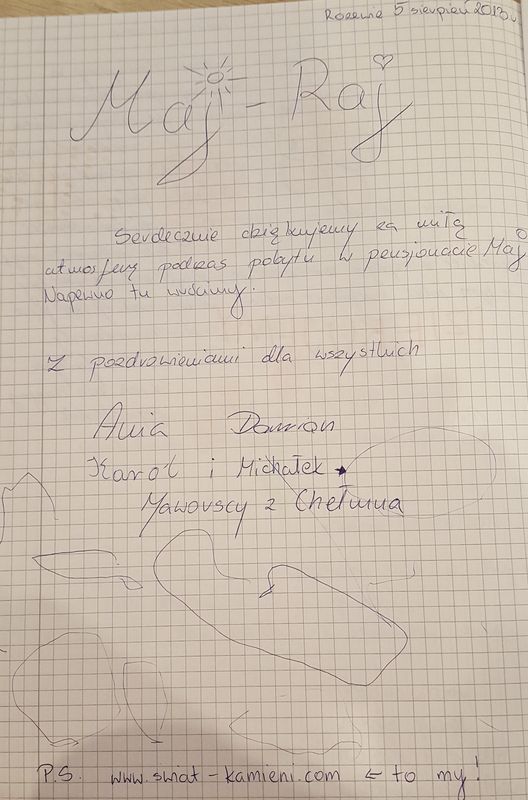 Rozewie 5 sierpień 2013r
Maj - Raj
Serdecznie dziękujemy za miłą
atmosferę podczas pobytu w pensjonacie Maj
Napewno tu wrócimy.
Z pozdrowieniami dla wszystkich
Ania Damian
Karol i Michałek
Mawovscy z Chełmna
P.S. www.swiat-kamieni.com ← to my!